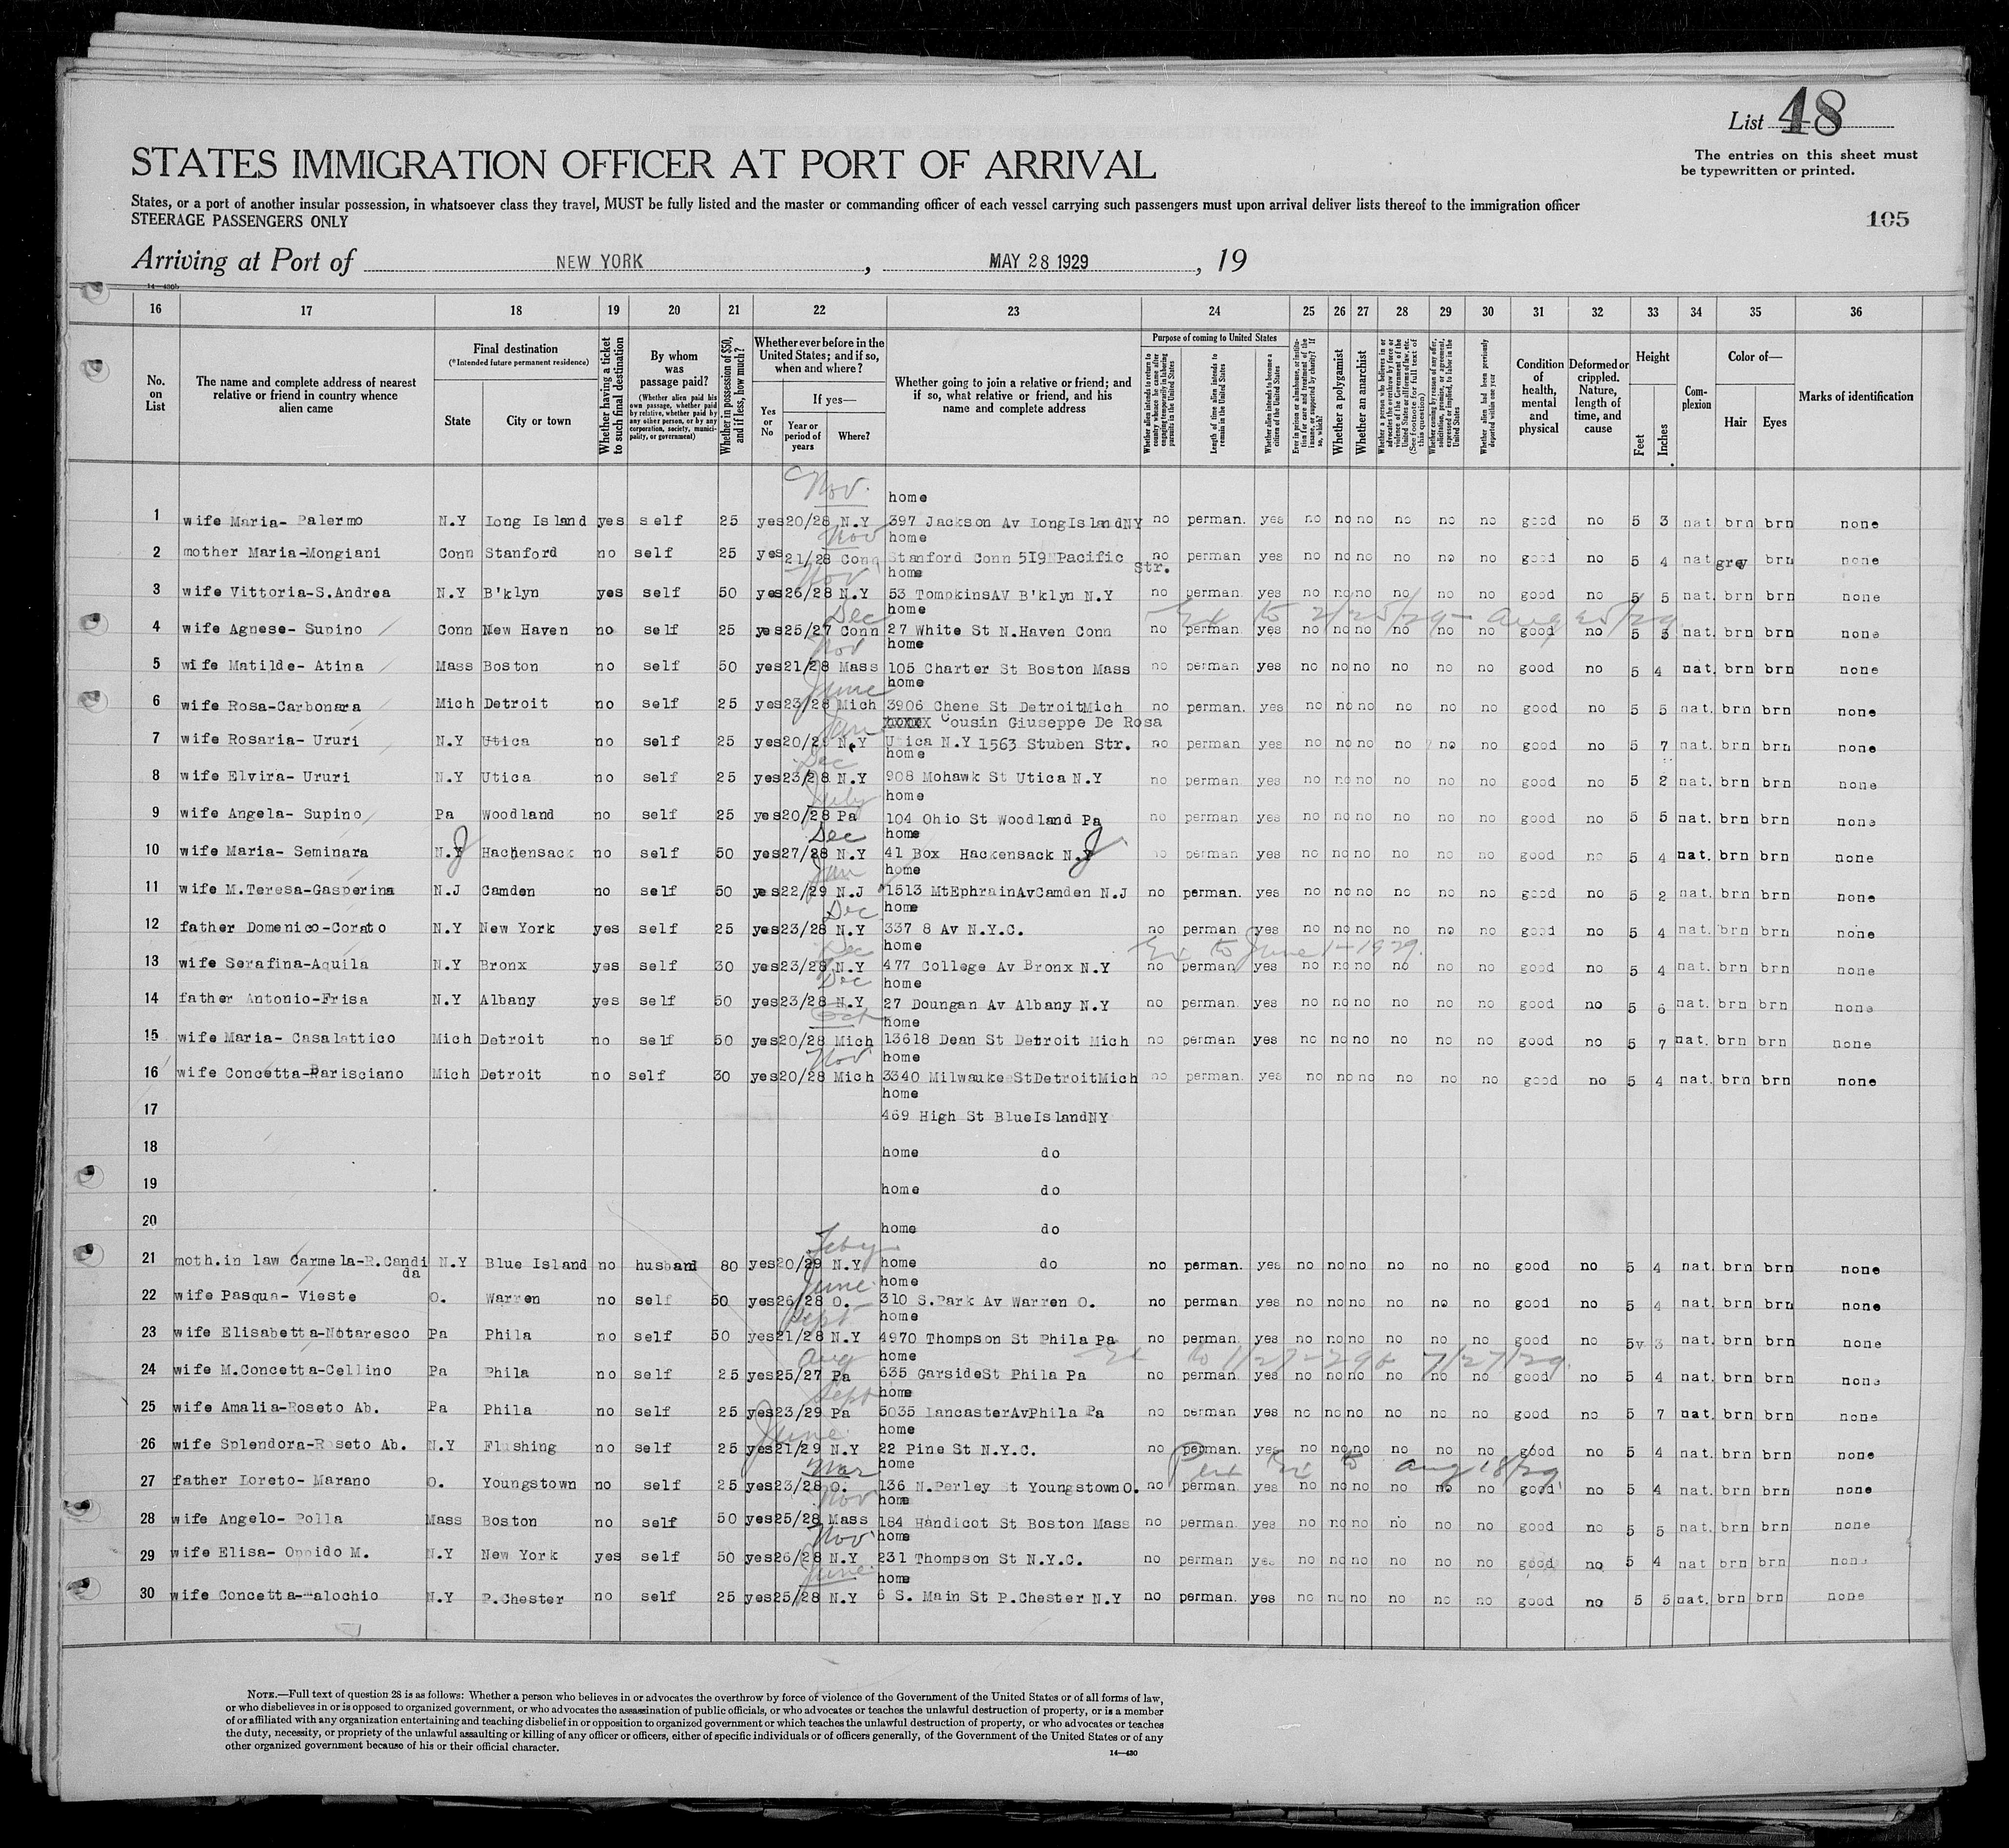 List 48
The entries on this sheet must
be typewritten or printed.
STATES IMMIGRATION OFFICER AT PORT OF ARRIVAL
States, or a port of another insular possession, in whatsoever class they travel, MUST be fully listed and the master or commanding officer of each vessel carrying such passengers must upon arrival deliver lists thereof to the immigration officer
STEERAGE PASSENGERS ONLY
105
Arriving at Port of NEW YORK , MAY 28 1929 , 19
14—430b
16 17 18 19 20 21 22 23 24 25 26 27 28 29 30 31 32 33 34 35 36
No. on List
The name and complete address of nearest relative or friend in country whence alien came
Final destination (*Intended future permanent residence)
State
City or town
Whether having a ticket to such final destination
By whom was passage paid? (Whether alien paid his own passage, whether paid by relative, whether paid by any other person, or by any corporation, society, municipality, or government)
Whether in possession of $50, and if less, how much?
Whether ever before in the United States; and if so, when and where?
Yes or No
If yes—
Year or period of years
Where?
Whether going to join a relative or friend; and if so, what relative or friend, and his name and complete address
Purpose of coming to United States
Whether alien intends to return to country whence he came after engaging temporarily in laboring pursuits in the United States
Length of time alien intends to remain in the United States
Whether alien intends to become a citizen of the United States
Ever in prison or almshouse, or institution for care and treatment of the insane, or supported by charity? If so, which?
Whether a polygamist
Whether an anarchist
Whether a person who believes in or advocates the overthrow by force or violence of the Government of the United States or all forms of law, etc. (See footnote for full text of this question)
Whether coming by reason of any offer, solicitation, promise, or agreement, expressed or implied, to labor in the United States
Whether alien had been previously deported within one year
Condition of health, mental and physical
Deformed or crippled. Nature, length of time, and cause
Height
Feet
Inches
Complexion
Color of—
Hair
Eyes
Marks of identification
Nov. home
1 wife Maria- Palermo N.Y Long Island yes self 25 yes 20/28 N.Y 397 Jackson Av LongIslandNY no perman. yes no no no no no no good no 5 3 nat brn brn none
Nov home
2 mother Maria-Mongiani Conn Stanford no self 25 yes 21/28 Conn Stanford Conn 519 Pacific Str. no perman yes no no no no no no good no 5 4 nat grey brn none
Nov home
3 wife Vittoria-S.Andrea N.Y B'klyn yes self 50 yes 26/28 N.Y 53 TompkinsAV B'klyn N.Y no perman. yes no no no no no no good no 5 5 nat. brn brn none
Dec home Ex to 2/25/29- Aug 25/29
4 wife Agnese- Supino Conn New Haven no self 25 yes 25/27 Conn 27 White St N.Haven Conn no perman yes no no no no no no good no 5 3 nat. brn brn none
Nov home
5 wife Matilde- Atina Mass Boston no self 50 yes 21/28 Mass 105 Charter St Boston Mass no perman yes no no no no no no good no 5 4 nat. brn brn none
June home
6 wife Rosa-Carbonara Mich Detroit no self 25 yes 23/28 Mich 3906 Chene St DetroitMich no perman. yes no no no no no no good no 5 5 nat. brn brn none
Jan xxxxx Cousin Giuseppe De Rosa
7 wife Rosaria- Ururi N.Y Utica no self 25 yes 20/29 N.Y Utica N.Y 1563 Stuben Str. no perman yes no no no no no no good no 5 7 nat. brn brn none
Dec home
8 wife Elvira- Ururi N.Y Utica no self 25 yes 23/28 N.Y 908 Mohawk St Utica N.Y no perman. yes no no no no no no good no 5 2 nat. brn brn none
July home
9 wife Angela- Supino Pa Woodland no self 25 yes 20/28 Pa 104 Ohio St Woodland Pa no perman. yes no no no no no no good no 5 5 nat. brn brn none
Dec home
10 wife Maria- Seminara N.J Hachensack no self 50 yes 27/28 N.Y 41 Box Hackensack N.J no perman yes no no no no no no good no 5 4 nat. brn brn none
Jan home
11 wife M.Teresa-Gasperina N.J Camden no self 50 yes 22/29 N.J 1513 MtEphrainAvCamden N.J no perman. yes no no no no no no good no 5 2 nat. brn brn none
Dec home
12 father Domenico-Corato N.Y New York yes self 25 yes 23/28 N.Y 337 8 Av N.Y.C. no perman yes no no no no no no good no 5 4 nat. brn brn none
Dec home Ex to June 1-1929.
13 wife Serafina-Aquila N.Y Bronx yes self 30 yes 23/28 N.Y 477 College Av Bronx N.Y no perman yes no no no no no no good no 5 4 nat. brn brn none
Dec home
14 father Antonio-Frisa N.Y Albany yes self 50 yes 23/28 N.Y. 27 Doungan Av Albany N.Y no perman. yes no no no no no no good no 5 6 nat. brn brn none
Oct home
15 wife Maria- Casalattico Mich Detroit no self 50 yes 20/28 Mich 13618 Dean St Detroit Mich no perman yes no no no no no no good no 5 7 nat. brn brn none
Nov home
16 wife Concetta-Parisciano Mich Detroit no self 30 yes 20/28 Mich 3340 MilwaukeeStDetroitMich no perman. yes no no no no no no good no 5 4 nat. brn brn none
home
17 469 High St BlueIslandNY
18 home do
19 home do
20 home do
Feby
21 moth.in law Carmela-R.Candi da N.Y Blue Island no husband 80 yes 20/29 N.Y home do no perman. yes no no no no no no good no 5 4 nat. brn brn none
June home
22 wife Pasqua- Vieste O. Warren no self 50 yes 26/28 O. 310 S.Park Av Warren O. no perman yes no no no no no no good no 5 4 nat. brn brn none
Sept home
23 wife Elisabetta-Notaresco Pa Phila no self 50 yes 21/28 N.Y 4970 Thompson St Phila Pa no perman. yes no no no no no no good no 5v 3 nat. brn brn none
Aug home Ex to 1/27-29 & 7/27/29.
24 wife M.Concetta-Cellino Pa Phila no self 25 yes 25/27 Pa 635 GarsideSt Phila Pa no perman yes no no no no no no good no 5 4 nat. brn brn none
Sept home
25 wife Amalia-Roseto Ab. Pa Phila no self 25 yes 23/29 Pa 5035 LancasterAvPhila Pa no perman yes no no no no no no good no 5 7 nat. brn brn none
June home
26 wife Splendora-Roseto Ab. N.Y Flushing no self 25 yes 21/29 N.Y 22 Pine St N.Y.C. no perman. yes no no no no no no good no 5 4 nat. brn brn none
Mar home Ex to Aug 18/29
27 father Loreto- Marano O. Youngstown no self 25 yes 23/28 O. 136 N.Perley St Youngstown O. no perman yes no no no no no no good no 5 4 nat. brn brn none
Nov home
28 wife Angelo- Polla Mass Boston no self 50 yes 25/28 Mass 184 Handicot St Boston Mass no perman yes no no no no no no good no 5 5 nat. brn brn none
Nov home
29 wife Elisa- Oppido M. N.Y New York yes self 50 yes 26/28 N.Y 231 Thompson St N.Y.C. no perman yes no no no no no no good no 5 4 nat brn brn none
June home
30 wife Concetta-Malochio N.Y P.Chester no self 25 yes 25/28 N.Y 6 S. Main St P.Chester N.Y no perman. yes no no no no no no good no 5 5 nat. brn brn none
NOTE.—Full text of question 28 is as follows: Whether a person who believes in or advocates the overthrow by force of violence of the Government of the United States or of all forms of law,
or who disbelieves in or is opposed to organized government, or who advocates the assassination of public officials, or who advocates or teaches the unlawful destruction of property, or is a member
of or affiliated with any organization entertaining and teaching disbelief in or opposition to organized government or which teaches the unlawful destruction of property, or who advocates or teaches
the duty, necessity, or propriety of the unlawful assaulting or killing of any officer or officers, either of specific individuals or of officers generally, of the Government of the United States or of any
other organized government because of his or their official character.
14—430